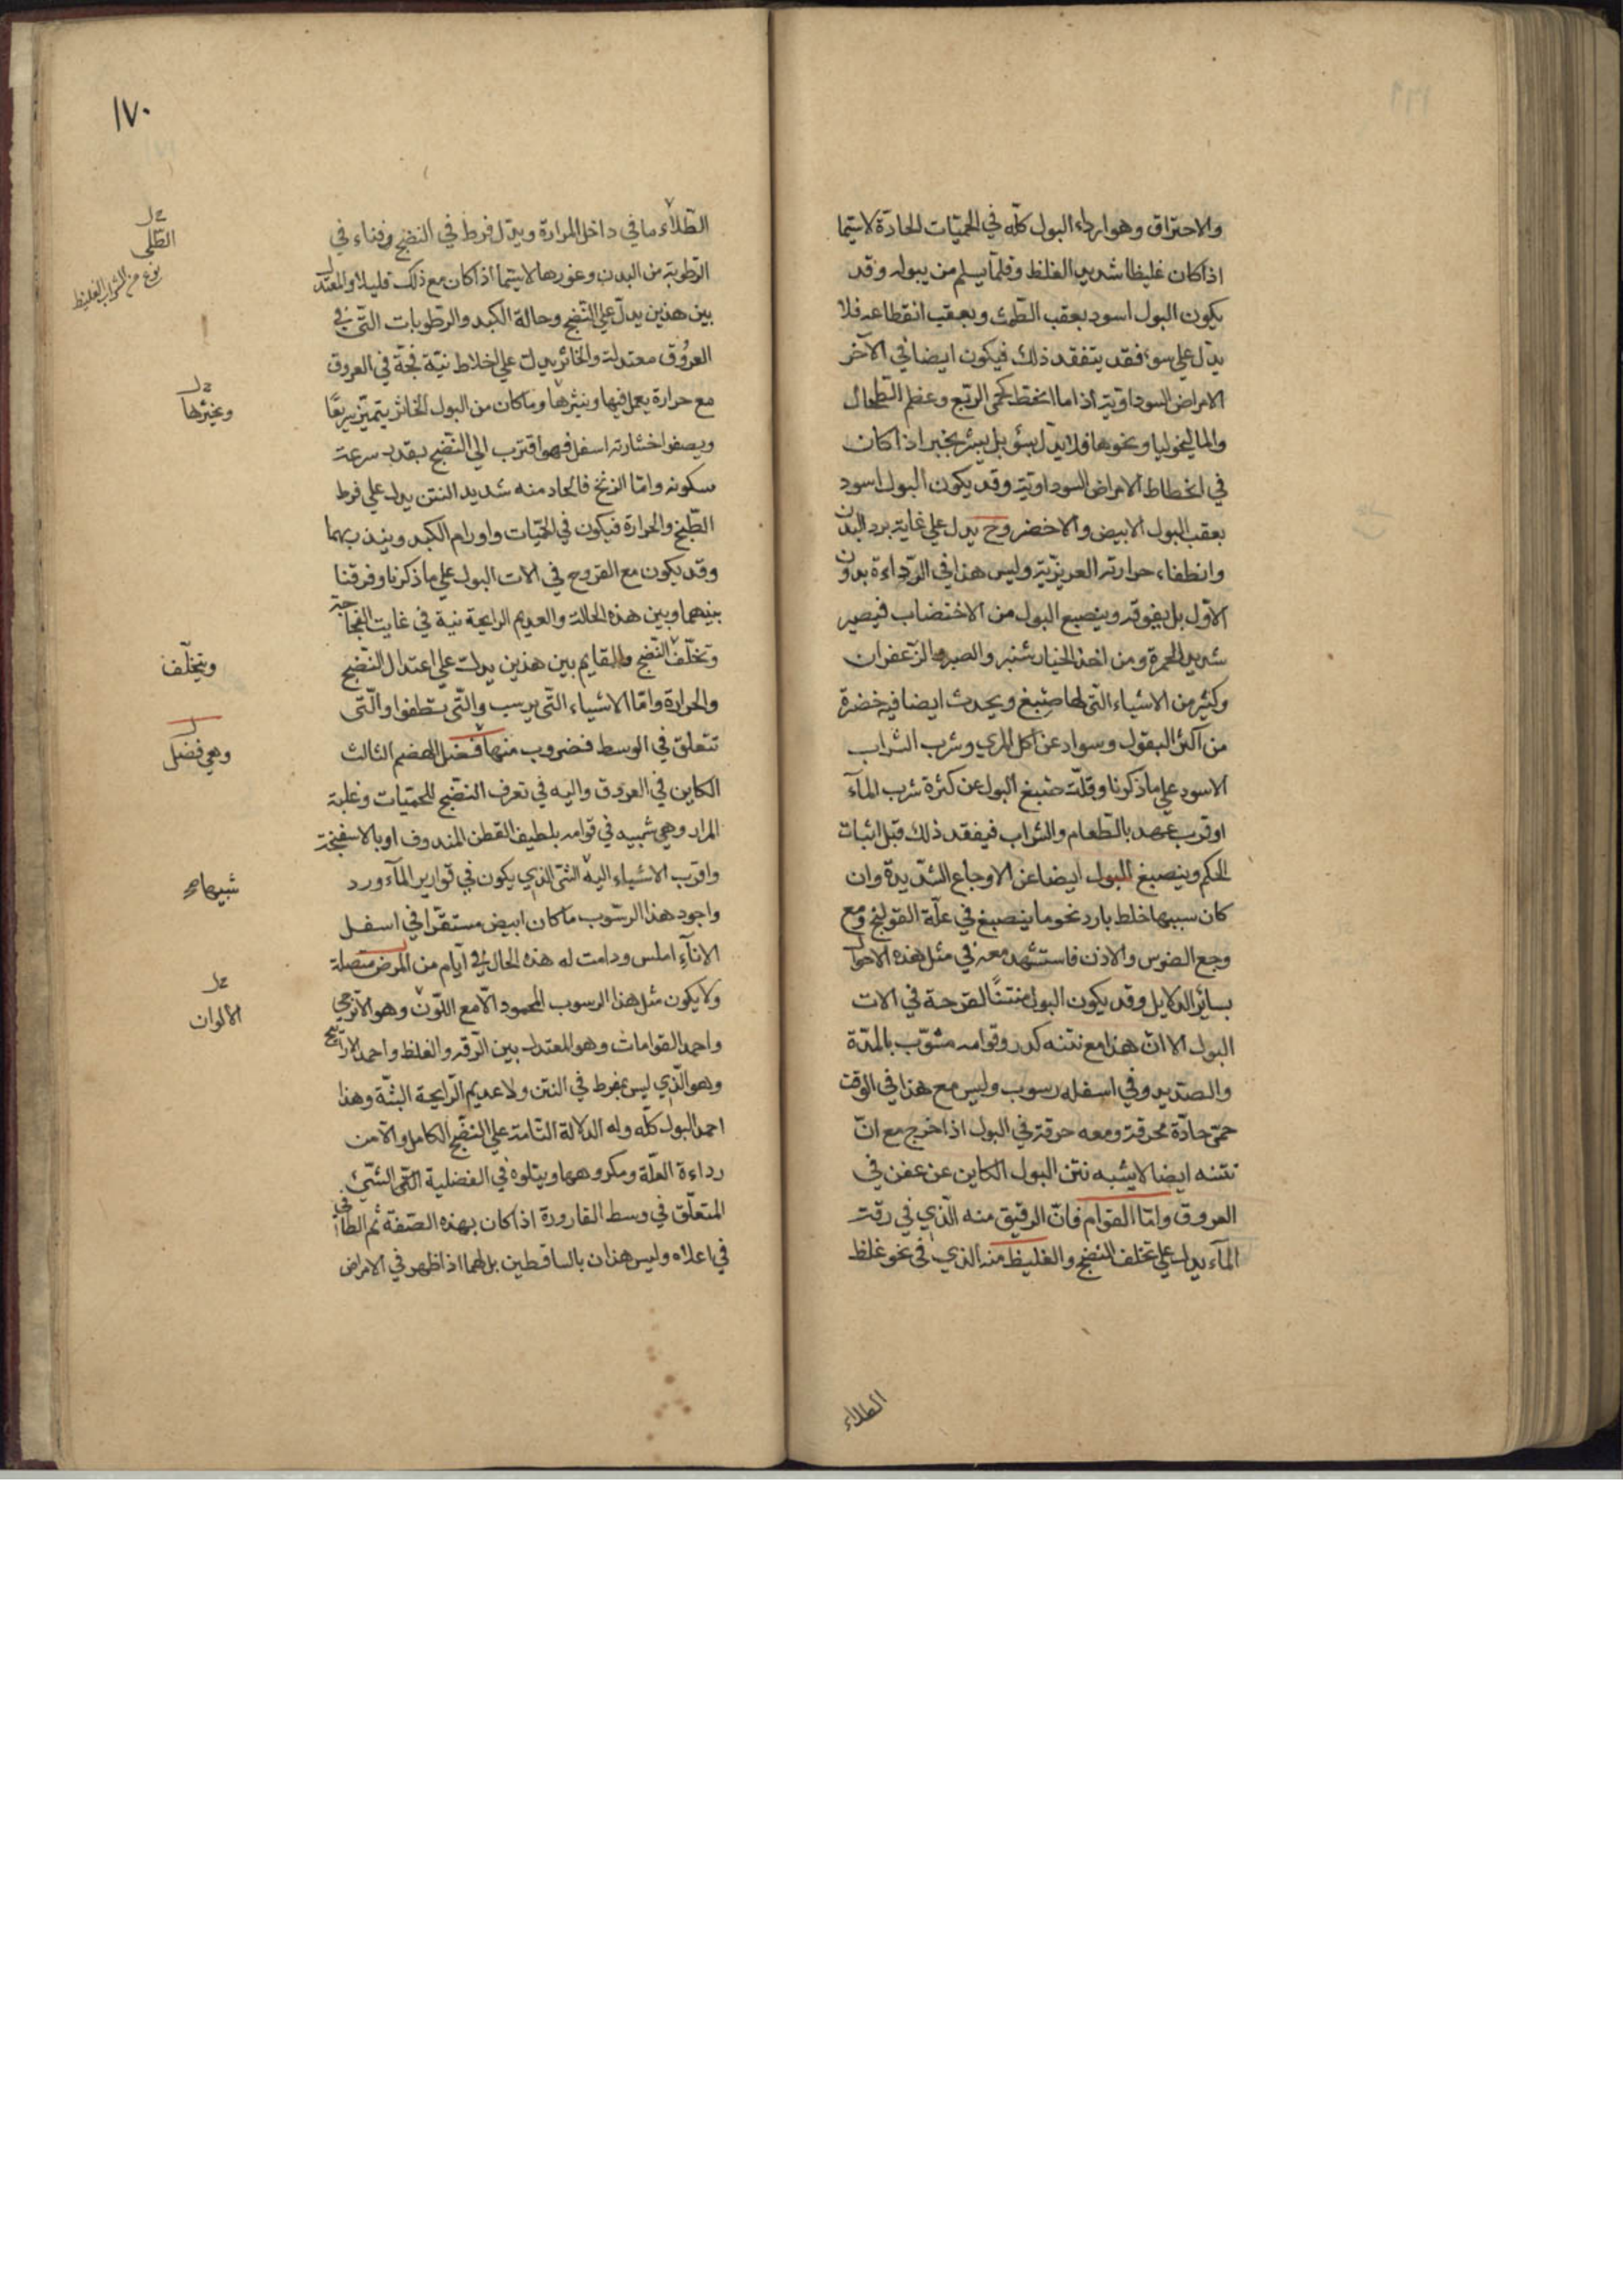 والاحتراق وهو اردأ البول كلّه في الحميّات الحادّة لاسيّما
اذا كان غليظا شديد الغلظ وقلّما يسلم من يبوله وقد
يكون البول اسود بعقب الطّمث وبعقب انقطاعه فلا
يدّل علي سوء فقد يتفقد ذلك فيكون ايضا في الآخر
الامراض السوداويّة اذا ما انخط كحمى الربّع وعظم الطّحال
والماليخوليا ونحوها فلا يدّل بسؤ بل يبشر بخير اذا كان
في انخطاط الامراض السوداويّة وقد يكون البول اسود
بعقب البول الابيض والاخضر وح يدل علي غاية برد البدن
وانطفاء حرارته الغريزيّة وليس هذا في الرّداءة بدون
الاوّل بل يفوقه وينصبع البول من الاختضاب فيصير
شديد الحمرة ومن اخذ الخيار شنبر والصبر والزّعفران
وكثير من الاشياء التّي لها صبغ ويحدث ايضا فيه خضرة
من اكثر البقول وسواد عن اكل المري وشرب الشراب
الاسود علي ما ذكرنا وقلّت صبغ البول عن كثرة شرب المآء
او قرب عهد بالطّعام والشراب فيفقد ذلك قبل اثبات
الحكم وينصبغ البول ايضا عن الاوجاع الشّديدة وان
كان سببها خلط بارد نحو ما ينصبغ في علّة القولنج ومع
وجع الضرس والاذن فاستشهد معه في مثل هذه الاحوال
بسائر الدلايل وقد يكون البول منتنًا لقرحة في الات
البول الا انّ هذا مع نتنه كدر وقوامه مشوّب بالمدّة
والصّديد وفي اسفله رسوب وليس مع هذا في الوقت
حمّى حادّة محرقة ومعه حرقة في البول اذا خرج مع انّ
نتنه ايضا لا يشبه نتن البول الكاين عن عفن في
العروق وامّا القوام فانّ الرقيق منه الّذي في رقت
المآء يدل علي تخلف النضج والغليظ منه الذي في نحو غلظ
الطلاء
١٧٠
الطّلاء ما في داخل المرارة ويدّل فرط في النضج وفناء في
الرّطوبة من البدن وغورها لاسيّما اذا كان مع ذلك قليلا والمعتدل
بين هذين يدلّ علي النّضج وحالة الكبد والرطوبات التّي في
العرُوق معتدلة والخاثر يدل علي اخلاط نيّة فجّة في العروق
مع حرارة يعمل فيها ويثيرها وما كان من البول الخاثر يتميّز سريعًا
ويصفوا خثارته اسفل فهو اقترب الي النّضج بقدر سرعة
سكونه وامّا الزنخ فالحاد منه شديد النتن يدل علي فرط
الطّبخ والحرارة فيكون في الحمّيات واورام الكبد وينذر بهما
وقد يكون مع القروح في الات البول علي ما ذكرنا وفرقنا
بينهما وبين هذه الحالة والعديم الرايحة نية في غايت الفجاجة
وتخلّف النّضج والقايم بين هذين يدل علي اعتدال النّضج
والحرارة وامّا الاشياء التّي يرسب والتّي تطفوا والتّي
تتعلّق في الوسط فضروب منها فضل الهضم الثالث
الكاين في العروق واليه في تعرف النّضج للحميّات وغلبة
المرار وهي شبيه في قوامه بلطيف القطن المندوف او بالاسفنجة
واقرب الاشياء اليه الشئ الذي يكون في قوارير المآء ورد
واجود هذا الرسّوب ما كان ابيض مستقرّا في اسفل
الانآء املس ودامت له هذه الحال في ايّام من المرض متصلة
ولا يكون مثل هذا الرسوب المحمود الّا مع اللّون وهو الاترجي
واحمد القوامات وهو المعتدل بين الرّقه والغلظ واحمد الارابيح
وهو الّذي ليس بمفرط في النتن ولا عديم الرّايحة البتّة وهذا
احمد البول كلّه وله الدلالة التّامة علي النّضج الكامل والآمن
رداءة العلّة ومكروهها ويتلوه في الفضلية التّي الشّئ
المتعلّق في وسط القارورة اذا كان بهذه الصّفة ثم الطافي
في اعلاه وليس هذان بالساقطين بل لهما اذا ظهر في الامراض
الطّلى
نوع من الشراب الغليظ
ويخثرها
ويتخلّف
وهي فضل
شبيها
الالوان